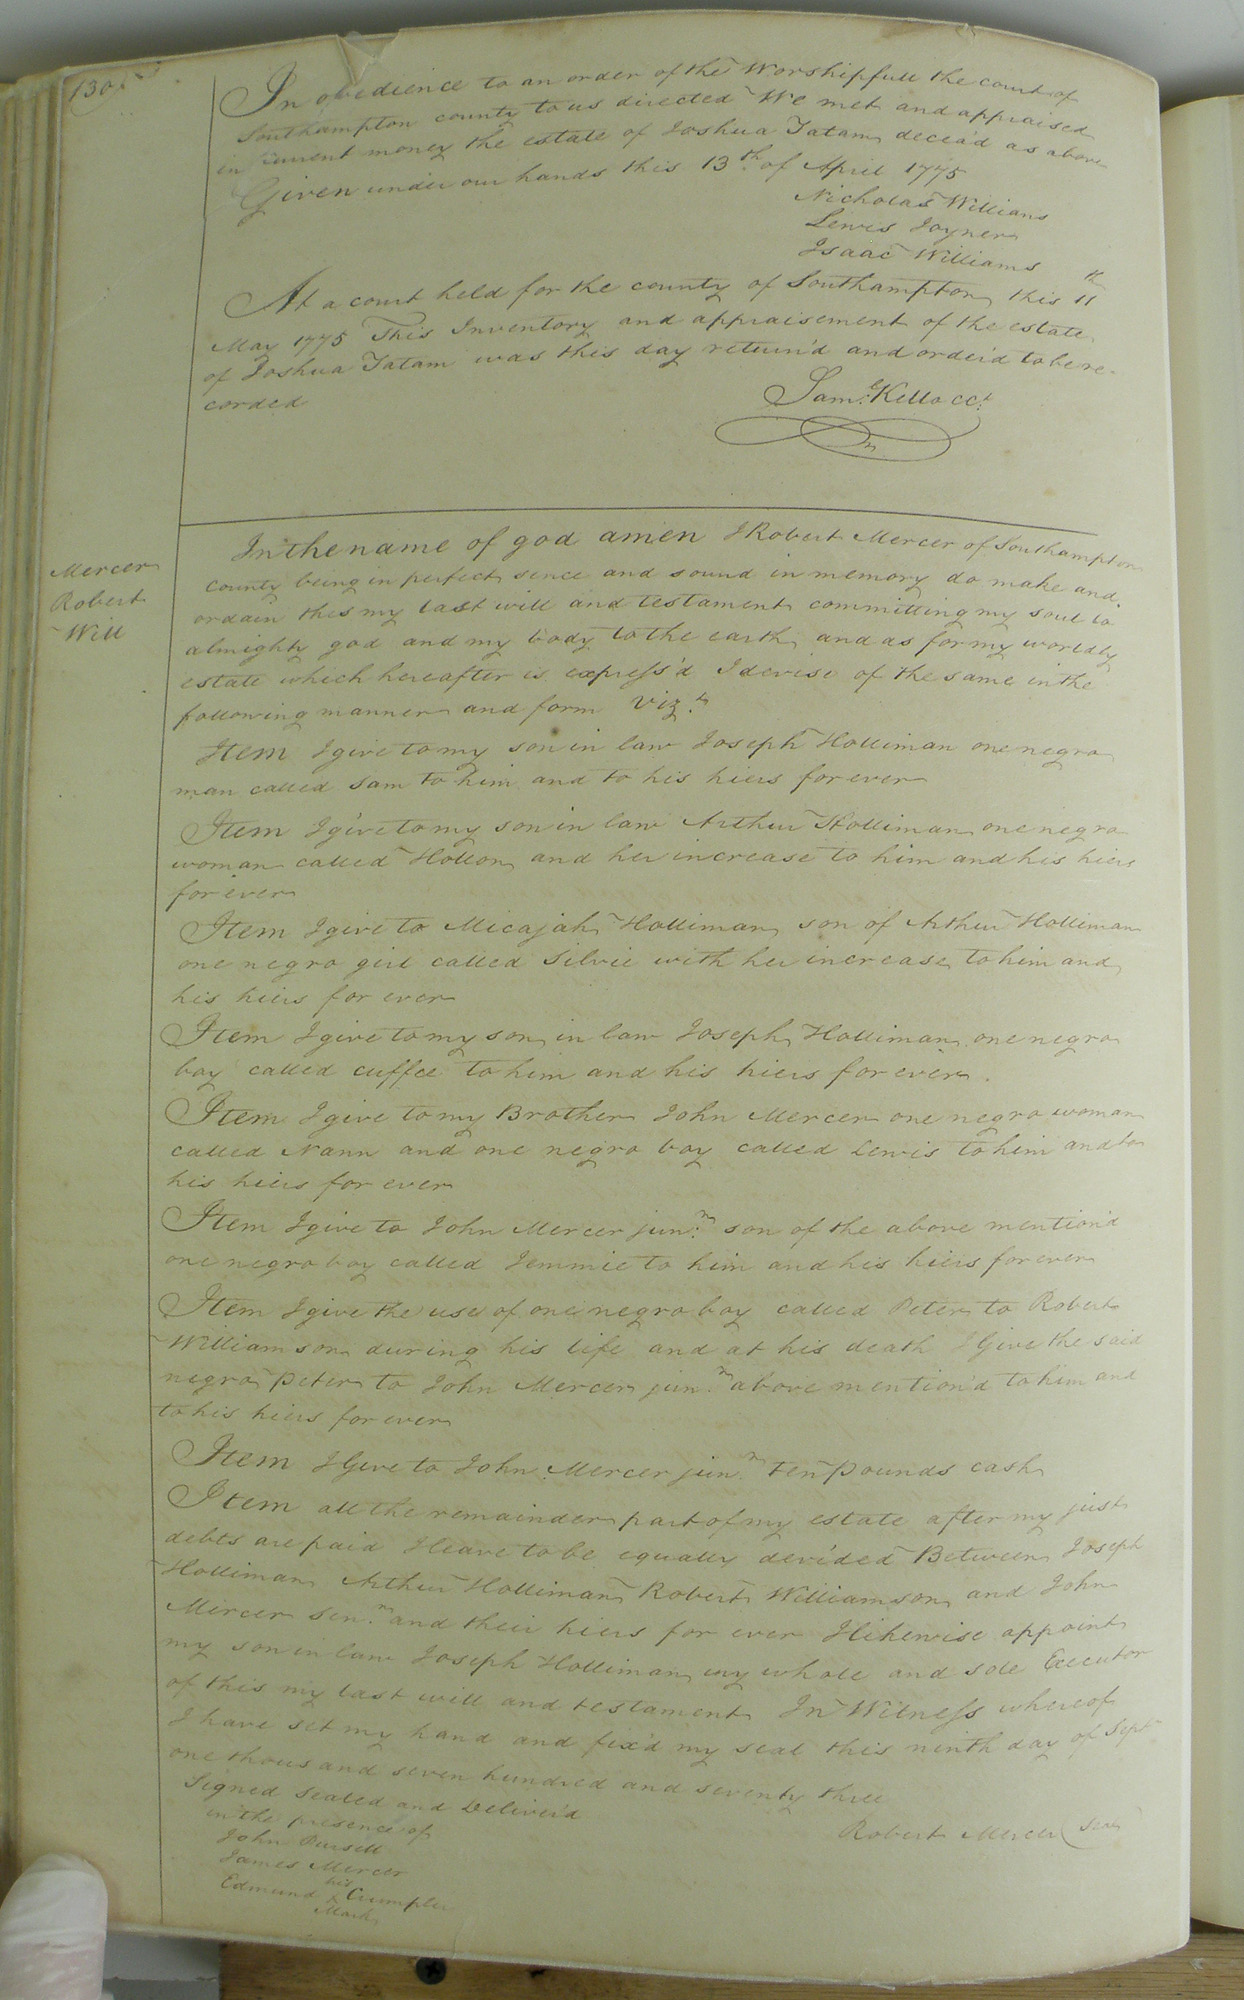 130
In obedience to an order of the Worshipfull the court of
Southampton county to us directed We met and appraised
in current money the estate of Joshua Tatam decea'd as above
Given under our hands this 13th. of April 1775
Nicholas Williams
Lewis Joyner
Isaac Williams
At a court held for the county of Southampton this 11th
May 1775 This Inventory and appraisement of the estate
of Joshua Tatam was this day return'd and order'd to be re-
corded
Saml. Kello CCt.
Mercer
Robert
Will
In the name of god amen I Robert Mercer of Southampton
county being in perfect sence and sound in memory do make and
ordain this my last will and testament committing my soul to
almighty god and my body to the earth and as for my worldly
estate which hereafter is express'd I devise of the same in the
following manner and form Viz.t
Item I give to my son in law Joseph Holliman one negro
man called Sam to him and to his hiers for ever
Item I give to my son in law Arthur Holliman one negro
woman called Hollon and her increase to him and his hiers
for ever
Item I give to Micajah Holliman son of Arthur Holliman
one negro girl called Silvie with her increase to him and
his hiers for ever
Item I give to my son in law Joseph Holliman one negro
boy called cuffee to him and his hiers for ever.
Item I give to my Brother John Mercer one negro woman
called Nann and one negro boy called Lewis to him and to
his hiers for ever
Item I give to John Mercer jun.r son of the above mention'd
one negro boy called Jemmie to him and his hiers for ever
Item I give the use of one negro boy called Peter to Robert
Williamson during his life and at his death I Give the said
negro Peter to John Mercer jun.r above mention'd to him and
to his hiers for ever
Item I Give to John Mercer jun.r ten Pounds cash
Item all the remainder part of my estate after my just
debts are paid I leave to be equally devided Between Joseph
Holliman Arthur Holliman Robert Williamson and John
Mercer Sen.r and their hiers for ever I likewise appoint
my son in law Joseph Holliman my whole and sole Executor
of this my last will and testament In Witness whereof
I have set my hand and fix'd my seal this ninth day of Sept
one thousand seven hundred and seventy three
Signed sealed and Deliver'd
in the presence of
Robert Mercer (seal)
John Pursell
James Mercer
his
Edmund X Crumpler
Mark